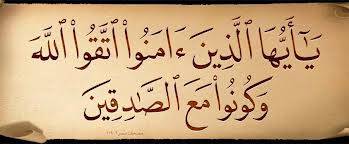 يَٰٓأَيُّهَا ٱلَّذِينَ ءَامَنُوا۟ ٱتَّقُوا۟ ٱللَّهَ
وَكُونُوا۟ مَعَ ٱلصَّٰدِقِينَ